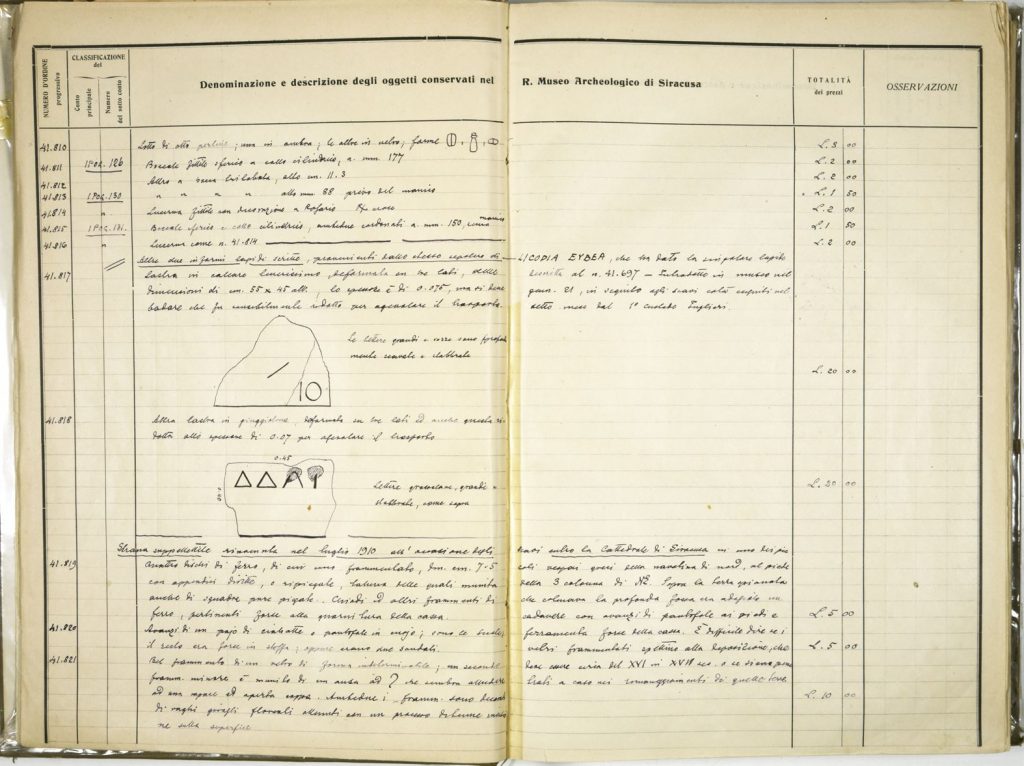 NUMERO D'ORDINE progressivo
CLASSIFICAZIONE del
Conto principale
Numero del sotto conto
Denominazione e descrizione degli oggetti conservati nel R. Museo Archeologico di Siracusa
TOTALITÀ dei prezzi
OSSERVAZIONI
41.810 Lotto di otto perline; una in ambra; le altre in vetro; forme L. 3 00
41.811 IPOG. 126 Boccale fittile sferico a collo cilindrico, a. mm. 177 L. 2 00
41.812 Altro a bocca trilobata, alto cm. 11.3 L. 2 00
41.813 IPOG. 130 " " " " alto mm. 88 privo del manico L. 1 50
41.814 " Lucerna fittile con decorazione a Rosario L. 2 00
41.815 IPOG. 131. Boccale sferico a collo cilindrico, cordonati a. mm. 150, manico L. 1 50
41.816 " Lucerna come n. 41.814 L. 2 00
Altre due informi lapidi scritte, provenienti dallo stesso sepolcro di LICODIA EVBEA, che ha dato la singolare lapide
41.817 Lastra in calcare, deformata su tre lati, delle descritta al n. 41.697 — Introdotte in museo nel
dimensioni di cm. 55 x 45 alt., lo spessore è di 0.075, ma si deve genn. 21, in seguito agli scavi colà eseguiti nel
badare che fu sensibilmente ridotto per agevolare il trasporto. detto mese dal 1° Custode
Le lettere grandi e rozze sono profonda
mente scavate e slabbrate
IO
L. 20 00
41.818 Altra lastra in, deformata su tre lati ed anche questa ri
dotta allo spessore di 0.07 per agevolare il trasporto
0.45
0.40
Δ Δ
Lettere grossolane, grandi e
slabbrate, come sopra
L. 20 00
Strana suppellettile rinvenuta nel luglio 1910 all'occasione degli scavi entro la Cattedrale di Siracusa in uno dei pic
41.819 Quattro dischi di ferro, di cui uno frammentato, dm. cm. 7.5 coli vespai greci della navatina di nord, al piede
con appendici diritte, o ripiegate, taluna delle quali munita della 3 colonna di Sopra la terra spianata
anche di squadre pure piegate. Chiodi ed altri frammenti di che colmava la profonda fossa era adagiato un
ferro, pertinenti forse alla guarnitura della cassa. cadavere con avanzi di pantofole ai piedi e L. 5 00
41.820 Avanzi di un pajo di ciabatte o pantofole in cuojo; sono le suole, ferramenta forse della cassa. È difficile dire se i
il resto era forse in stoffa; oppure erano due sandali. vetri frammentati spettino alla deposizione, che L. 5 00
41.821 Bel frammento di un vetro di forma indeterminabile; un secondo deve essere circa del XVI in XVII sec. o se siano pene
framm. minore è munito di un ansa ad che sembra alludere trati a caso nei rimaneggiamenti di quelle terre.
ad una ampia ed aperta coppa. Ambedue i framm. sono decorati L. 10 00
di vaghi girogli floreali ottenuti con un processo
ne sulla superficie